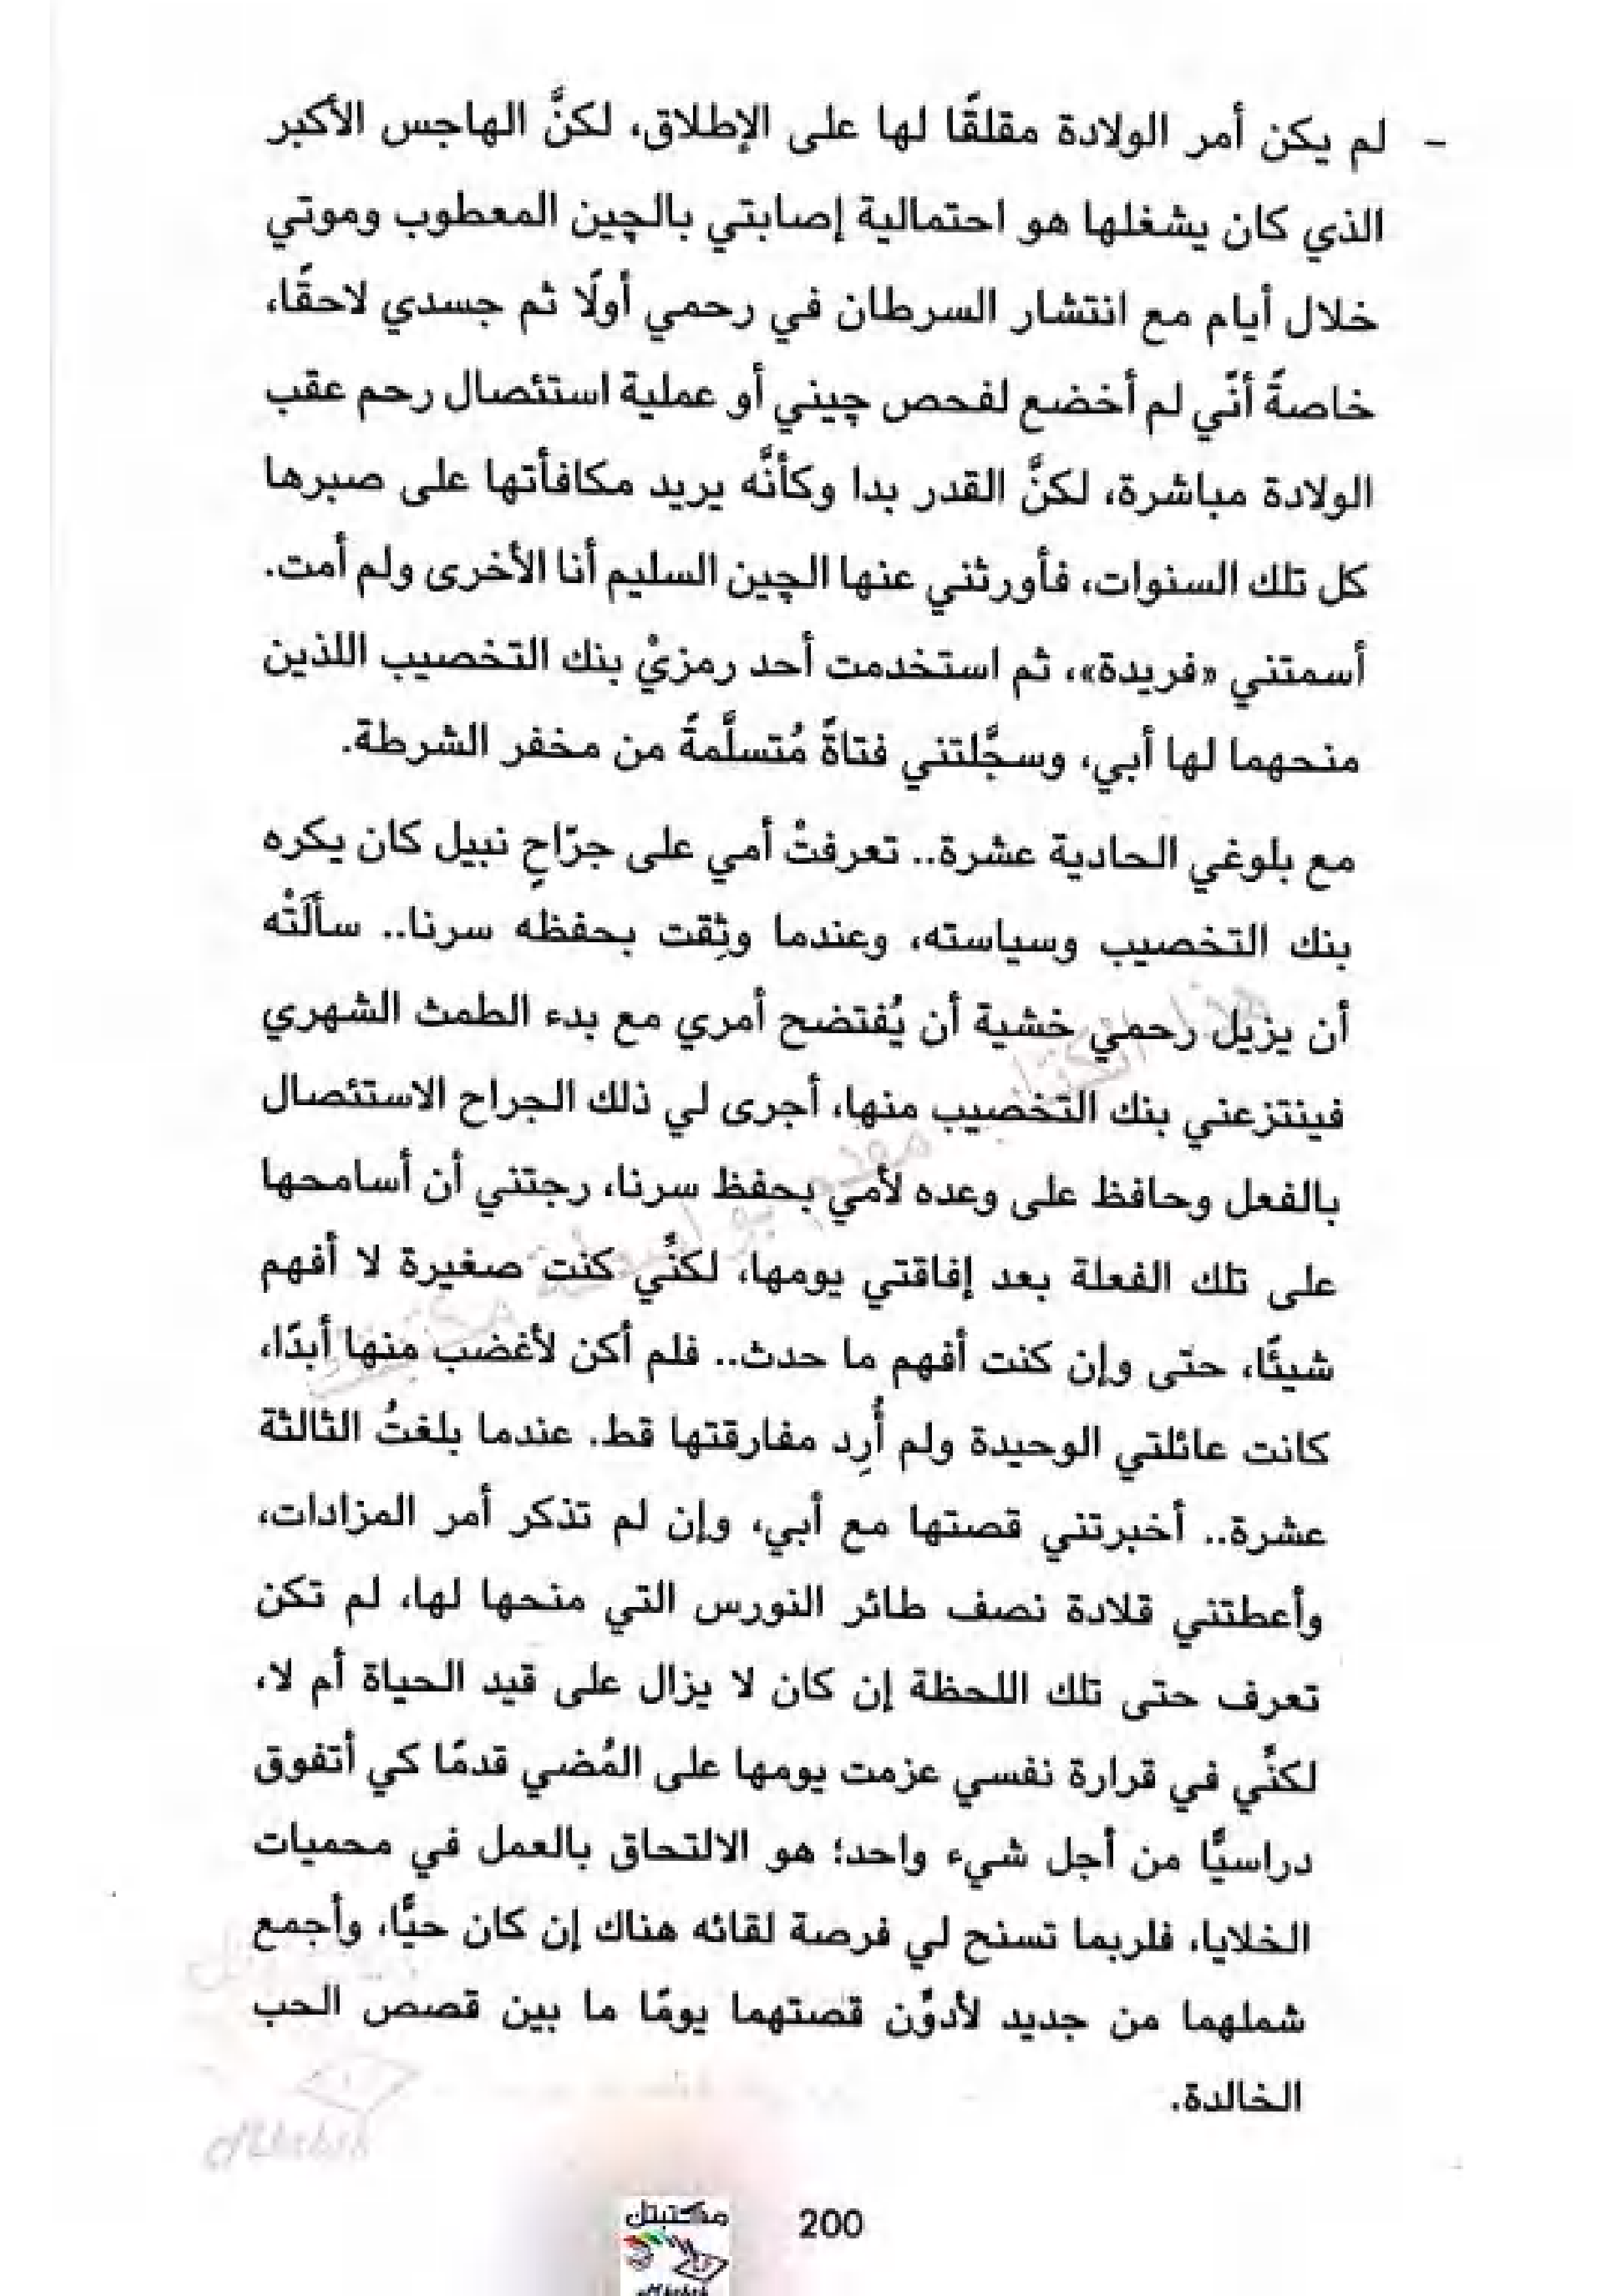 - لم يكن أمر الولادة مقلقًا لها على الإطلاق، لكنَّ الهاجس الأكبر
الذي كان يشغلها هو احتمالية إصابتي بالچين المعطوب وموتي
خلال أيام مع انتشار السرطان في رحمي أولًا ثم جسدي لاحقًا،
خاصةً أنّي لم أخضع لفحص چيني أو عملية استئصال رحم عقب
الولادة مباشرة، لكنَّ القدر بدا وكأنَّه يريد مكافأتها على صبرها
كل تلك السنوات، فأورثني عنها الچين السليم أنا الأخرى ولم أمت.
أسمتني «فريدة»، ثم استخدمت أحد رمزيْ بنك التخصيب اللذين
منحهما لها أبي، وسجَّلتني فتاةً مُتسلَّمةً من مخفر الشرطة.
مع بلوغي الحادية عشرة.. تعرفتْ أمي على جرّاحٍ نبيل كان يكره
بنك التخصيب وسياسته، وعندما وثِقت بحفظه سرنا.. سألَتْه
أن يزيل رحمي خشية أن يُفتضح أمري مع بدء الطمث الشهري
فينتزعني بنك التخصيب منها، أجرى لي ذلك الجراح الاستئصال
بالفعل وحافظ على وعده لأمي بحفظ سرنا، رجتني أن أسامحها
على تلك الفعلة بعد إفاقتي يومها، لكنَّي كنت صغيرة لا أفهم
شيئًا، حتى وإن كنت أفهم ما حدث.. فلم أكن لأغضب منها أبدًا،
كانت عائلتي الوحيدة ولم أُرِد مفارقتها قط. عندما بلغتُ الثالثة
عشرة.. أخبرتني قصتها مع أبي، وإن لم تذكر أمر المزادات،
وأعطتني قلادة نصف طائر النورس التي منحها لها، لم تكن
تعرف حتى تلك اللحظة إن كان لا يزال على قيد الحياة أم لا،
لكنَّي في قرارة نفسي عزمت يومها على المُضي قدمًا كي أتفوق
دراسيًّا من أجل شيء واحد؛ هو الالتحاق بالعمل في محميات
الخلايا، فلربما تسنح لي فرصة لقائه هناك إن كان حيًّا، وأجمع
شملهما من جديد لأدوَّن قصتهما يومًا ما بين قصص الحب
الخالدة.
200
مكتبتك